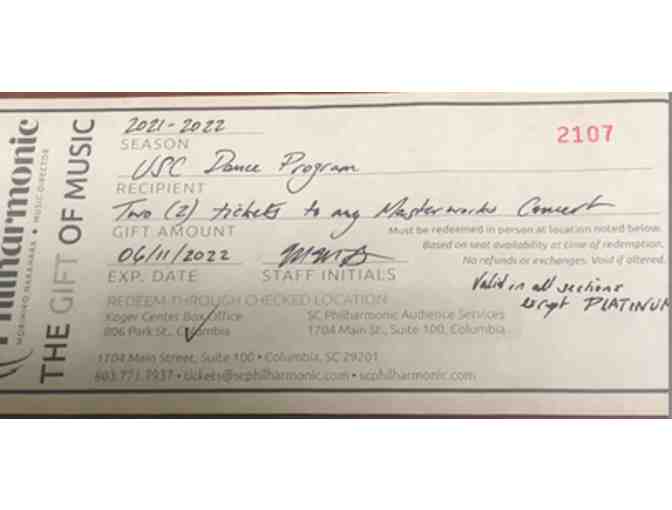 Philharmonic
MORIHIKO NAKAHARA • MUSIC DIRECTOR
THE GIFT OF MUSIC
2021-2022
SEASON
2107
USC Dance Program
RECIPIENT
Two (2) tickets to any Masterworks Concert
GIFT AMOUNT
Must be redeemed in person at location noted below.
Based on seat availability at time of redemption.
No refunds or exchanges. Void if altered.
06/11/2022
EXP. DATE
STAFF INITIALS
Valid in all sections
except PLATINUM
REDEEM THROUGH CHECKED LOCATION:
Koger Center Box Office
806 Park St., Columbia
SC Philharmonic Audience Services
1704 Main St., Suite 100, Columbia
1704 Main Street, Suite 100 • Columbia, SC 29201
803.771.7937 • tickets@scphilharmonic.com • scphilharmonic.com